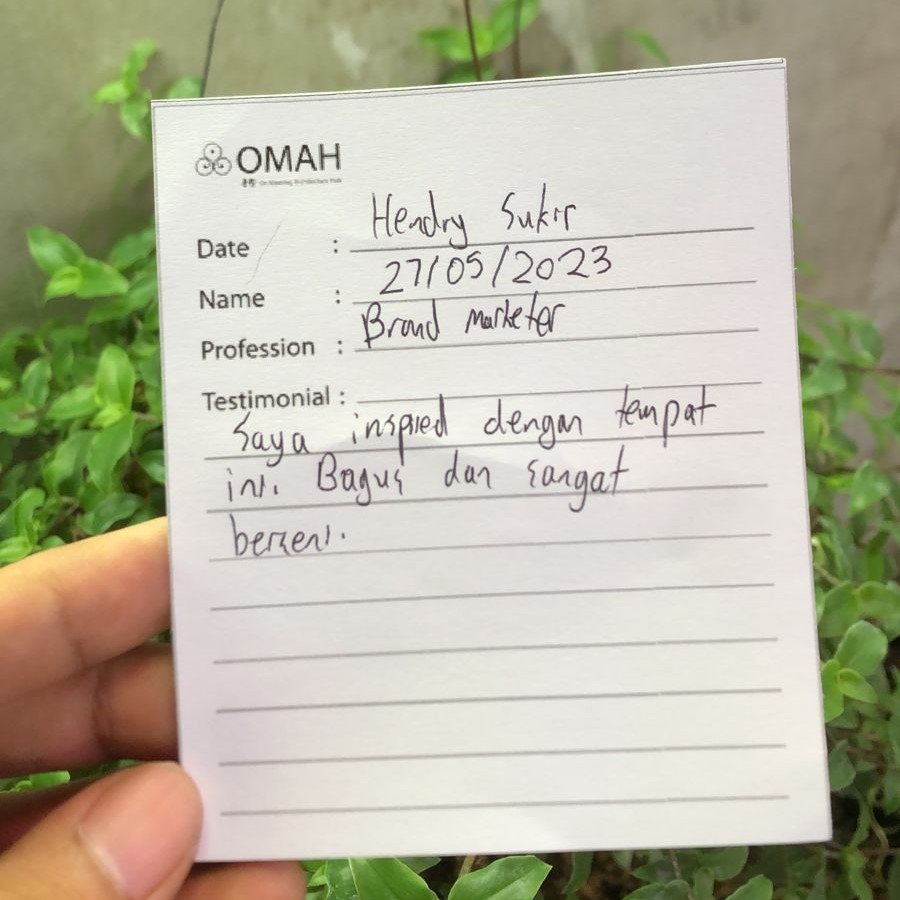 OMAH
Hendry Sukir
Date :
27/05/2023
Name :
Brand Marketer
Profession :
Testimonial :
Saya inspired dengan tempat
ini. Bagus dan sangat
berseni.